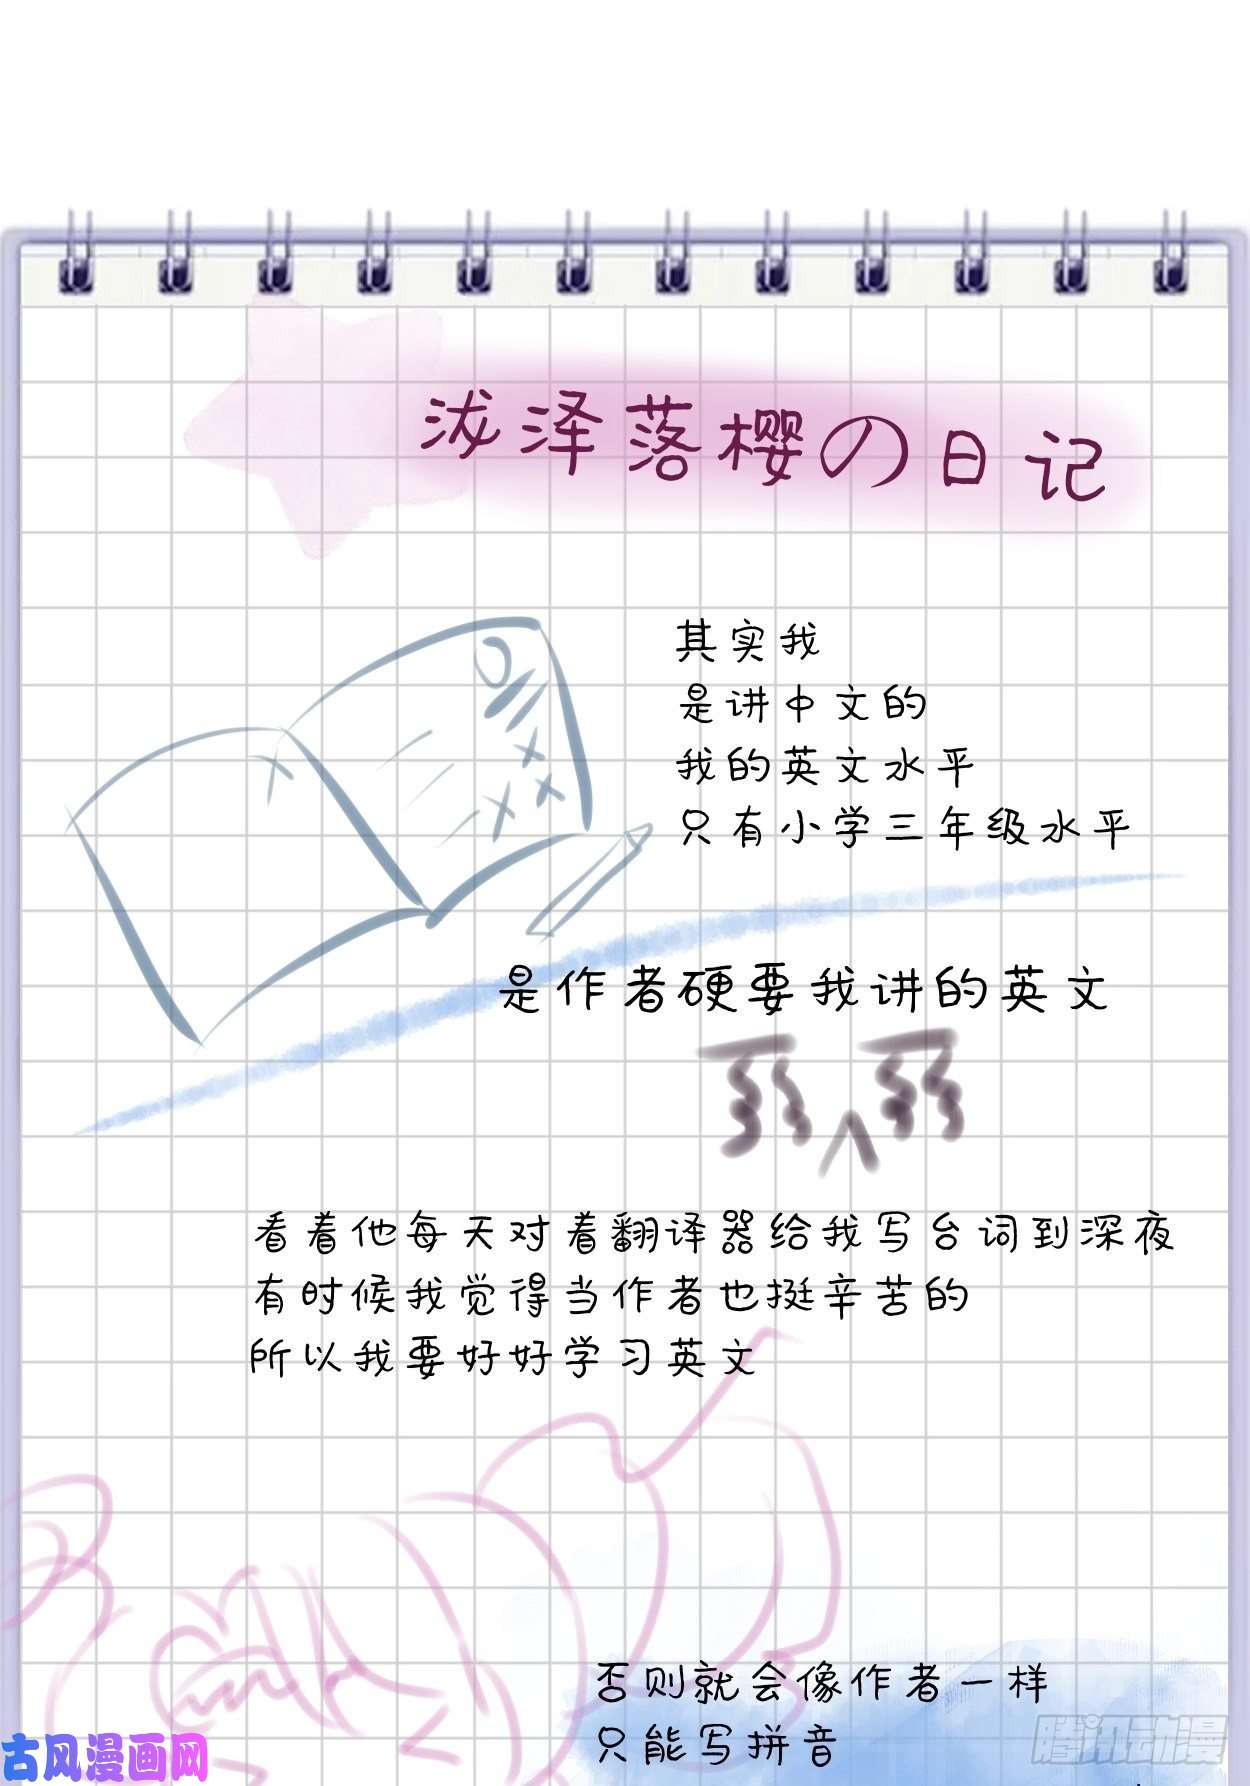 泷泽落樱の日记
其实我
是讲中文的
我的英文水平
只有小学三年级水平
是作者硬要我讲的英文
看着他每天对着翻译器给我写台词到深夜
有时候我觉得当作者也挺辛苦的
所以我要好好学习英文
否则就会像作者一样
只能写拼音
古风漫画网
腾讯动漫